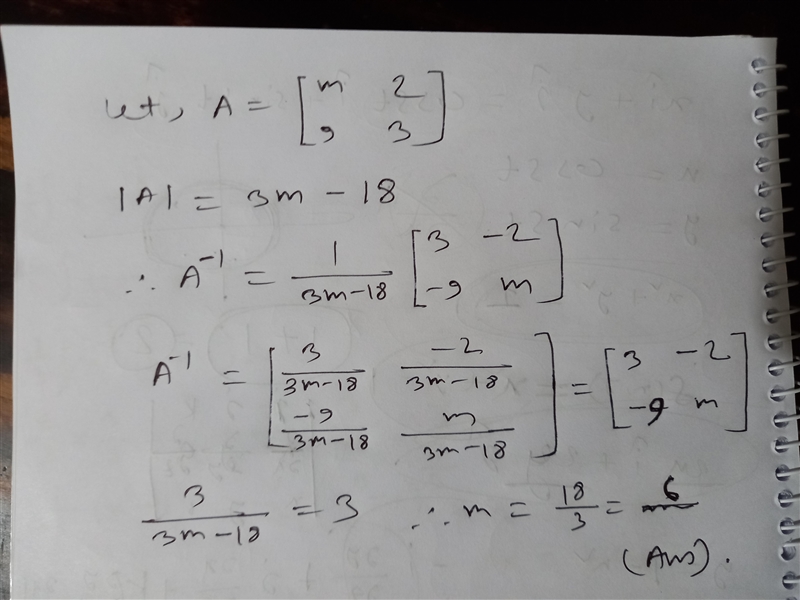 Let, A = [m 2
9 3]
|A| = 3m − 18
∴ A⁻¹ = 1/(3m−18) [3 −2
−9 m]
A⁻¹ = [3/(3m−18) −2/(3m−18)
−9/(3m−18) m/(3m−18)] = [3 −2
−9 m]
3/(3m−18) = 3 ∴ m = 18/3 = 6
(Ans).